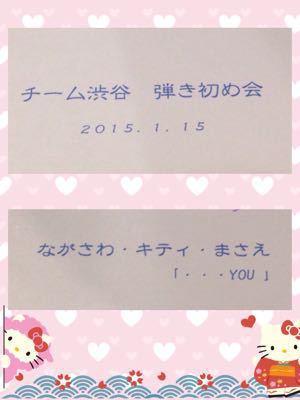 チーム渋谷　弾き初め会
２０１５．１．１５
ながさわ・キティ・まさえ
「・・・YOU 」